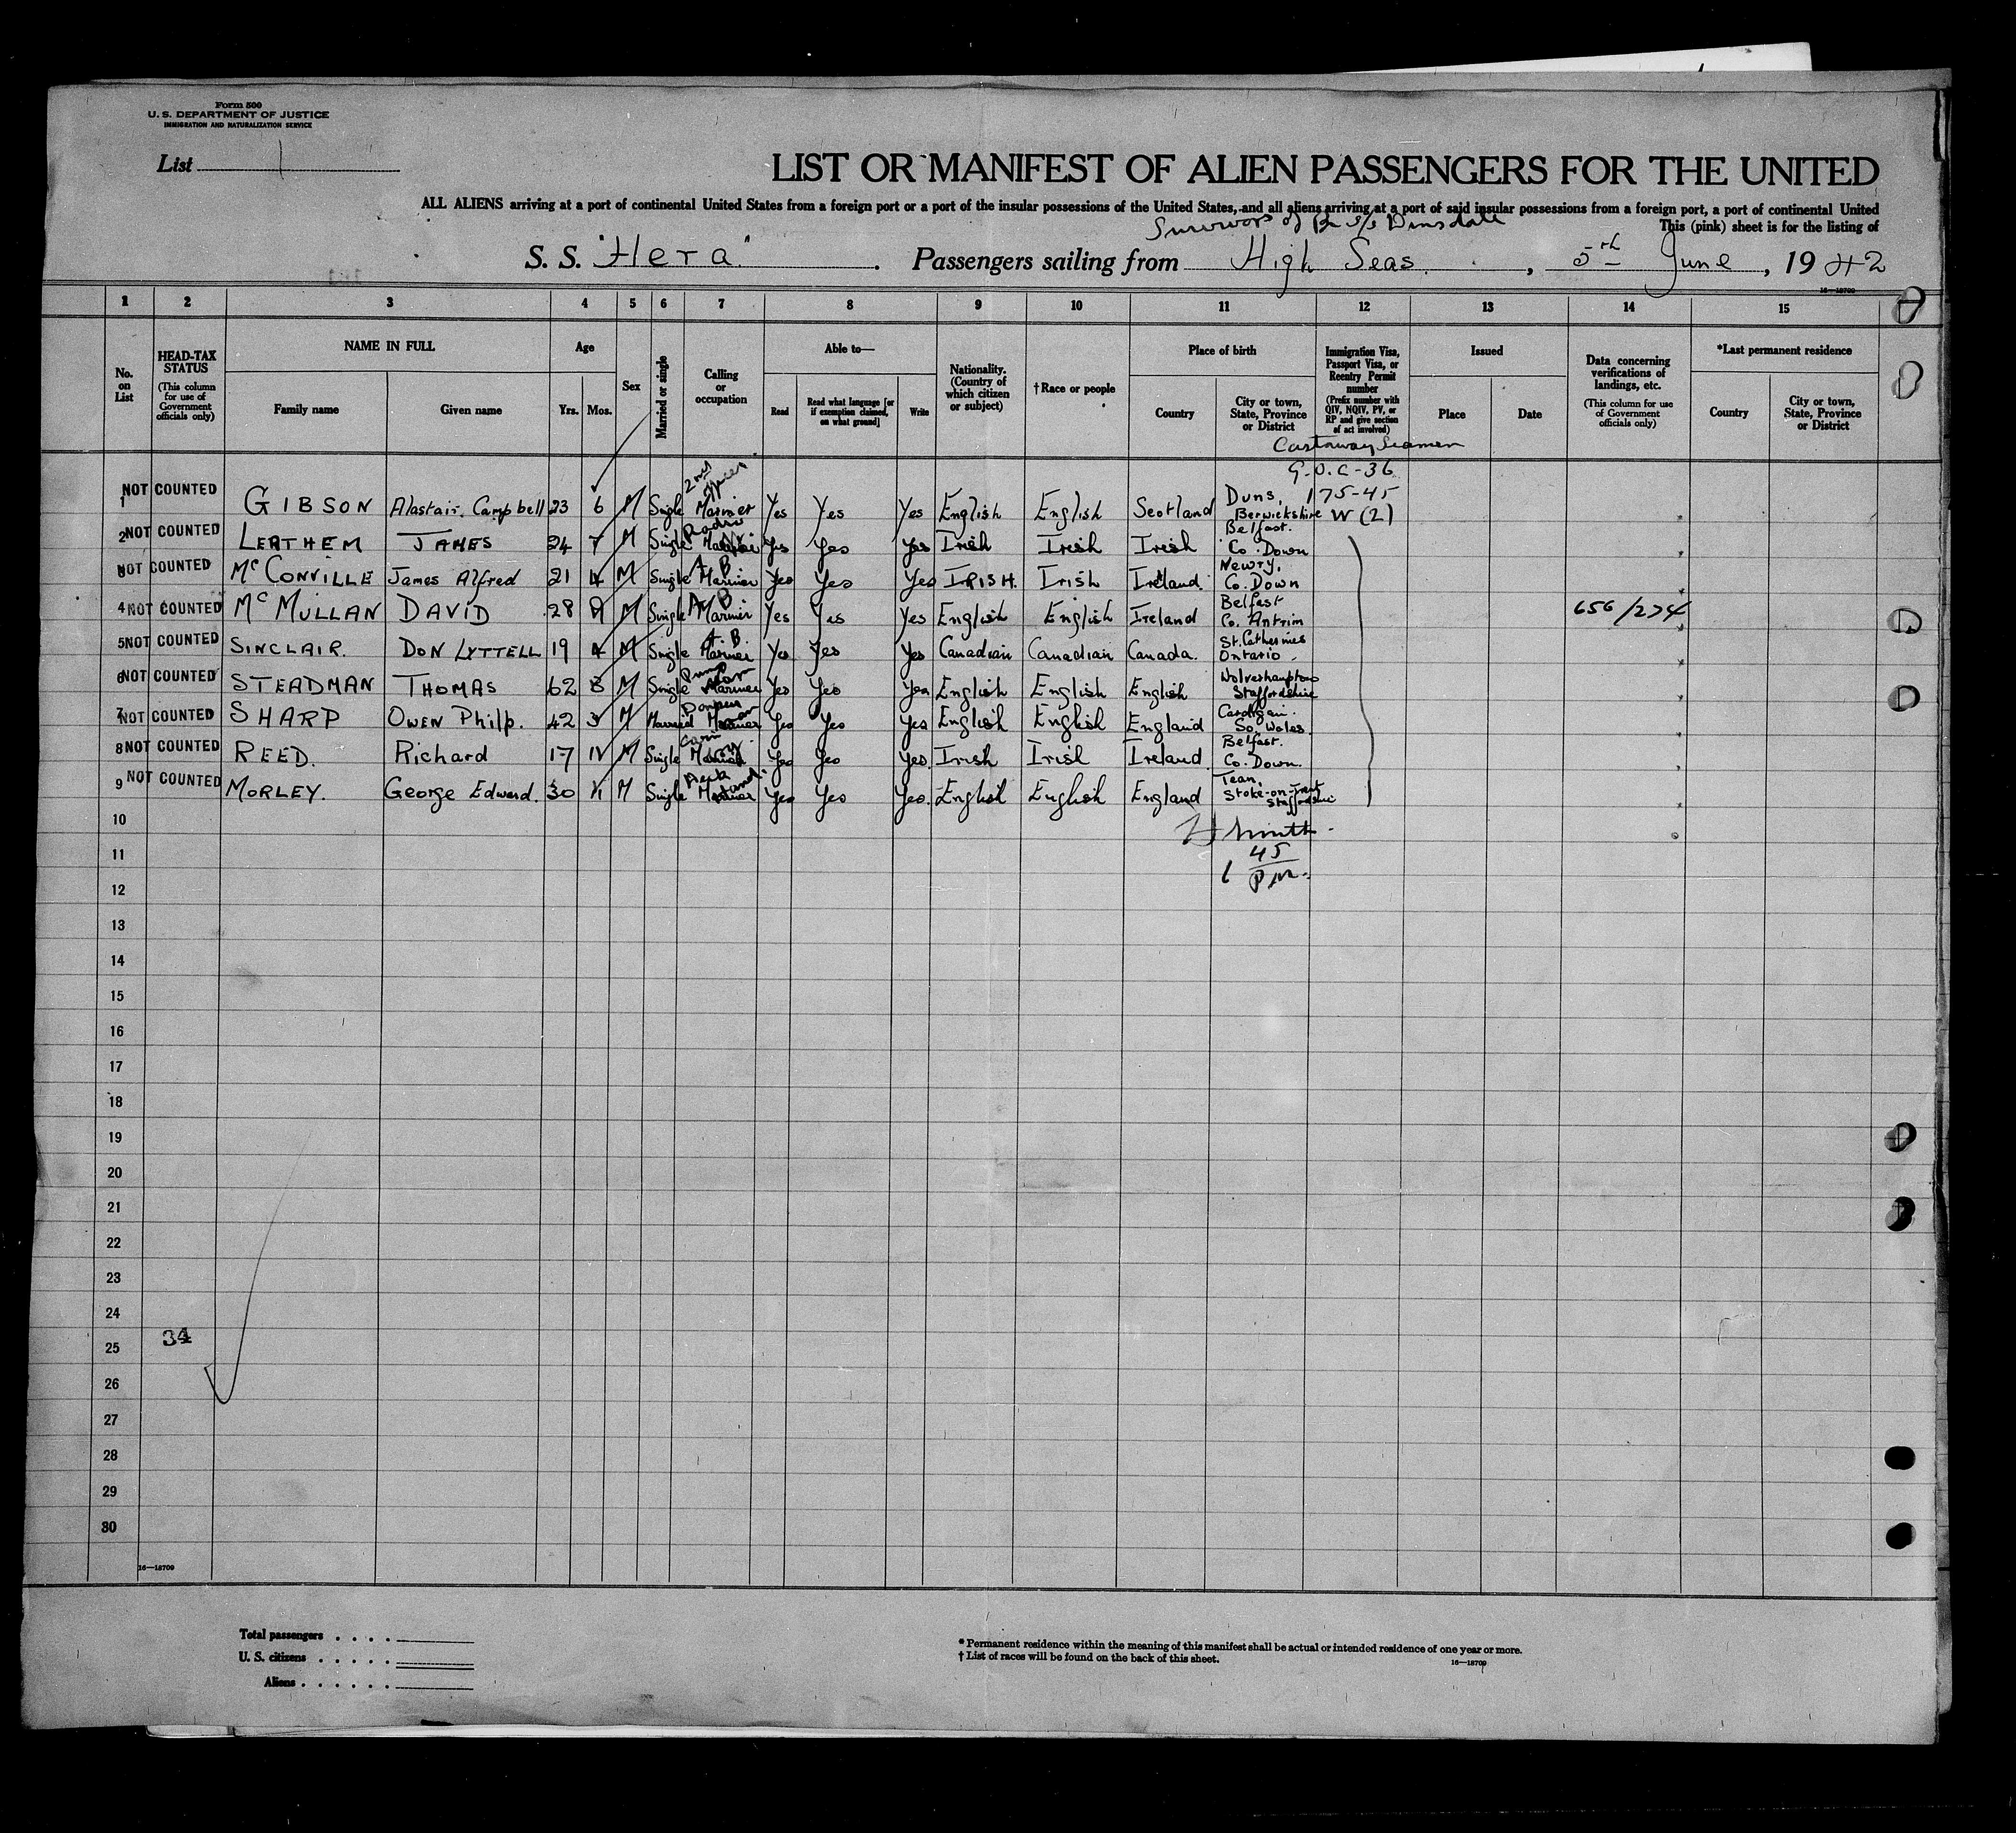 Form 500
U. S. DEPARTMENT OF JUSTICE
IMMIGRATION AND NATURALIZATION SERVICE
List 1
LIST OR MANIFEST OF ALIEN PASSENGERS FOR THE UNITED
ALL ALIENS arriving at a port of continental United States from a foreign port or a port of the insular possessions of the United States, and all aliens arriving at a port of said insular possessions from a foreign port, a port of continental United
Survivors of Br S/S Dinsdale
This (pink) sheet is for the listing of
S. S. "Hera". Passengers sailing from High Seas, 5th June, 1942
16—18709
1 2 3 4 5 6 7 8 9 10 11 12 13 14 15
No. on List
HEAD-TAX STATUS (This column for use of Government officials only)
NAME IN FULL
Family name Given name
Age
Yrs. Mos.
Sex
Married or single
Calling or occupation
Able to—
Read Read what language [or if exemption claimed, on what ground] Write
Nationality. (Country of which citizen or subject)
†Race or people
Place of birth
Country City or town, State, Province or District
Immigration Visa, Passport Visa, or Reentry Permit number (Prefix number with QIV, NQIV, PV, or RP and give section of act involved)
Issued
Place Date
Data concerning verifications of landings, etc. (This column for use of Government officials only)
*Last permanent residence
Country City or town, State, Province or District
Castaway Seamen
G.O.C-36
175-45
W (2)
1 NOT COUNTED GIBSON Alastair. Campbell 23 6 M Single 2nd Officer Mariner Yes Yes Yes English English Scotland Duns, Berwickshire
2 NOT COUNTED LEATHEM JAMES 24 7 M Single Radio Yes Yes Yes Irish Irish Irish Belfast. Co. Down
3 NOT COUNTED McCONVILLE James Alfred 21 4 M Single A B Mariner Yes Yes Yes IRISH. Irish Ireland. Newry, Co. Down
4 NOT COUNTED McMULLAN DAVID 28 M Single A B Mariner Yes Yes Yes English English Ireland Belfast Co. Antrim 656/274
5 NOT COUNTED SINCLAIR. DON LYTTELL 19 4 M Single A.B. Mariner Yes Yes Yes Canadian Canadian Canada. St. Catherines Ontario.
6 NOT COUNTED STEADMAN THOMAS 62 8 M Single Mariner Yes Yes Yes English English English Wolverhampton Staffordshire
7 NOT COUNTED SHARP OWEN Philp. 42 3 M Married Yes Yes Yes English English England Cardigan. So. Wales.
8 NOT COUNTED REED. Richard 17 M Single Yes Yes Yes. Irish Irish Ireland. Belfast. Co. Down.
9 NOT COUNTED MORLEY. George Edward. 30 M Single Yes Yes Yes. English English England Tean, Stoke-on-Trent Staffordshire
10 Smith.
11 1 45
12 P.M.
13
14
15
16
17
18
19
20
21
22
23
24
25 34
26
27
28
29
30
16—18709
Total passengers . . . .
U. S. citizens . . . . .
Aliens . . . . . .
* Permanent residence within the meaning of this manifest shall be actual or intended residence of one year or more.
† List of races will be found on the back of this sheet.
16—18709